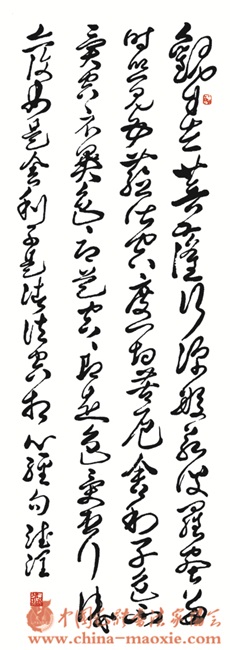 觀自在菩薩行深般若波羅蜜多
時照見五蘊皆空度一切苦厄舍利子色不
異空々不異色々即是空々即是色受想行識
亦復如是舍利子是諸法空相 心經句
www.china-maoxie.com